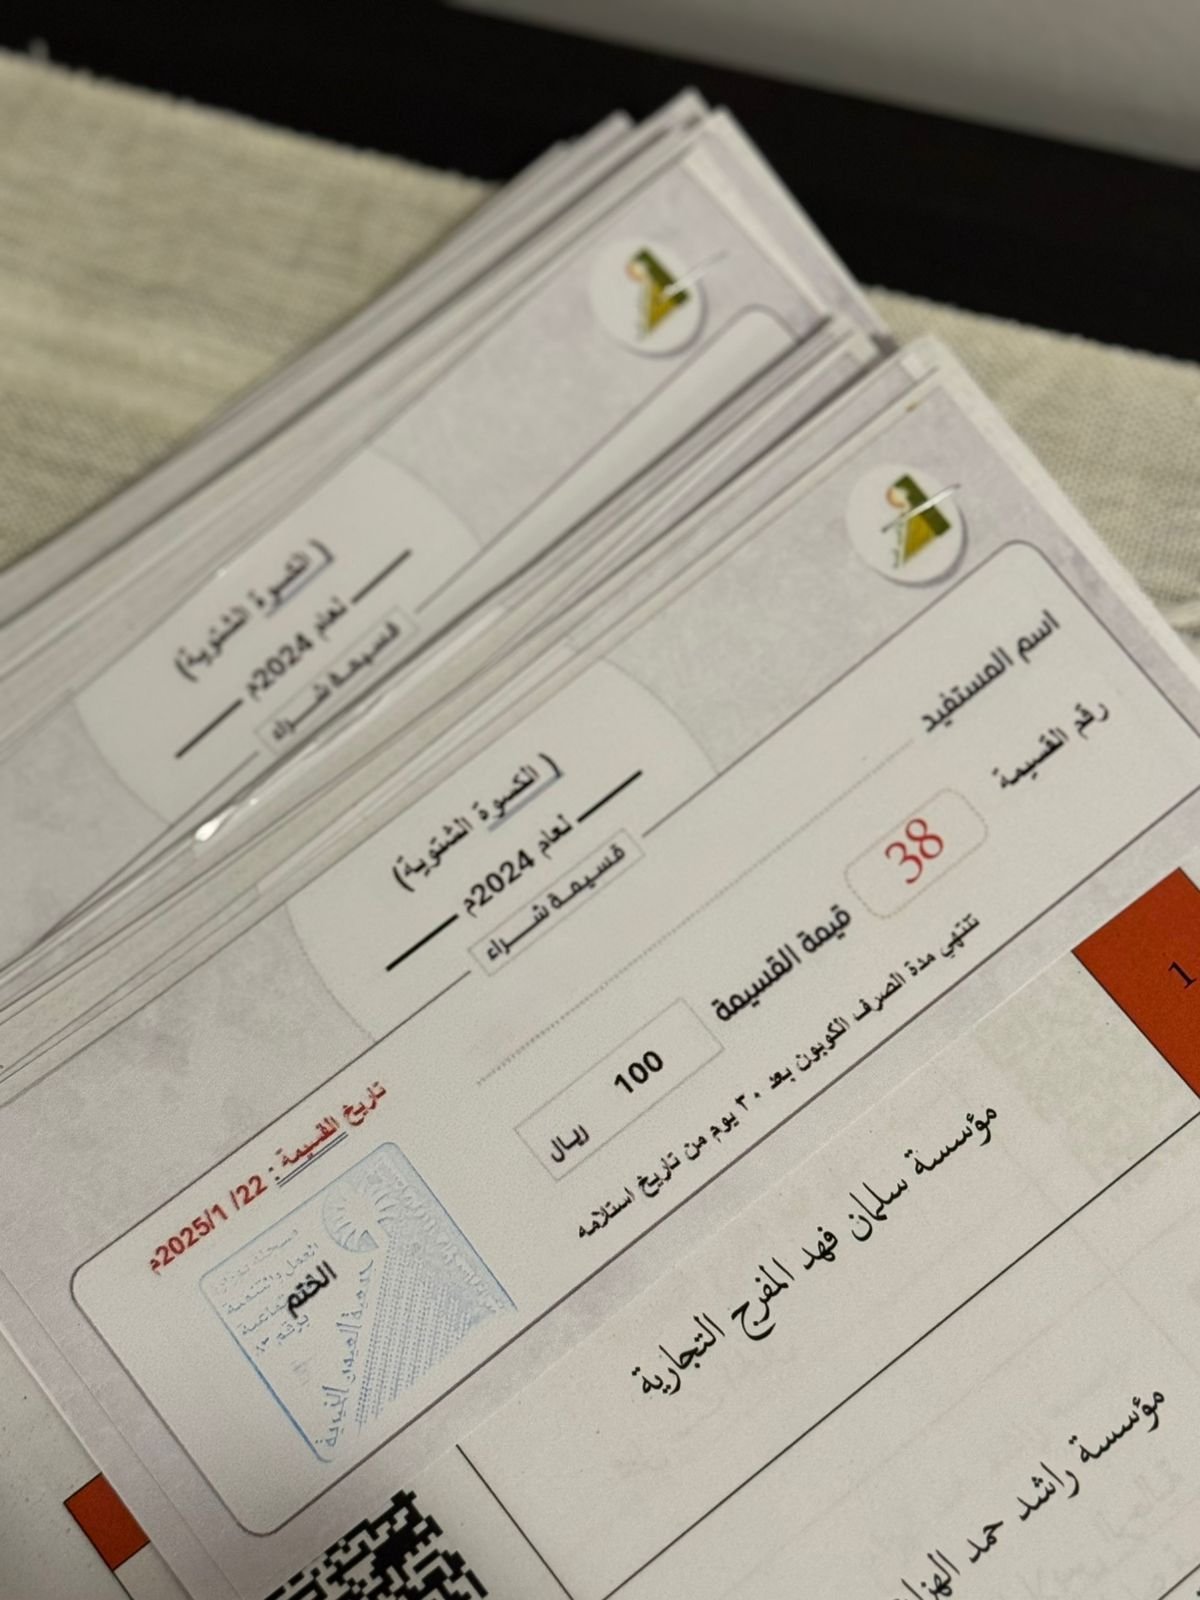 ( الكسوة الشتوية)
لعام 2024م
قسيمة شـــراء
( الكسوة الشتوية)
لعام 2024م
قسيمة شـــراء
اسم المستفيد
رقم القسيمة
38
قيمة القسيمة
100
ريال
تنتهي مدة الصرف الكوبون بعد ٣٠ يوم من تاريخ استلامه
تاريخ القسيمة : 22/ 1/2025م
الختم
العمل والتنمية
جمعية العيون الخيرية
1
مؤسسة سلمان فهد المفرج التجارية
مؤسسة راشد حمد